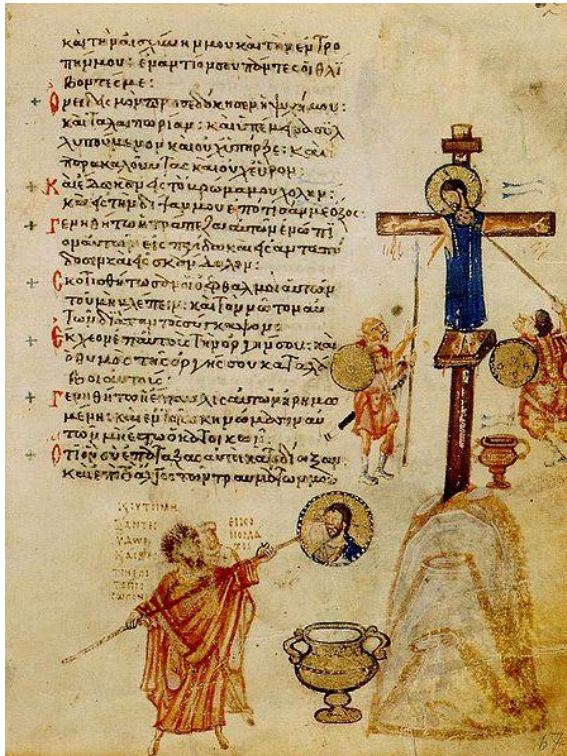 καὶ τὴν αἰσχύνην μου καὶ τὴν ἐντρο
πήν μου: ἐναντίον σου πάντες οἱ θλί
βοντές με:
Ὀνειδισμὸν προσεδόκησεν ἡ ψυχή μου:
καὶ ταλαιπωρίαν: καὶ ὑπέμεινα συλ
λυπούμενον καὶ οὐχ ὑπῆρξε: καὶ
παρακαλοῦντας καὶ οὐχ εὗρον:
Καὶ ἔδωκαν εἰς τὸ βρῶμα μου χολὴν:
καὶ εἰς τὴν δίψαν μου ἐπότισάν με ὄξος:
Γενηθήτω ἡ τράπεζα αὐτῶν ἐνώπι
ον αὐτῶν εἰς παγίδα καὶ εἰς ἀνταπό
δοσιν καὶ εἰς σκάνδαλον:
Σκοτισθήτωσαν οἱ ὀφθαλμοὶ αὐτῶν
τοῦ μὴ βλέπειν: καὶ τὸν νῶτον αὐ
τῶν διὰ παντὸς σύγκαμψον:
Ἔκχεον ἐπ αὐτοὺς τὴν ὀργήν σου: καὶ
ὁ θυμὸς τῆς ὀργῆς σου καταλά
βοι αὐτούς:
Γενηθήτω ἡ ἔπαυλις αὐτῶν ἠρημω
μένη: καὶ ἐν τοῖς σκηνώμασιν αὐ
τῶν μὴ ἔστω ὁ κατοικῶν:
Ὅτι ὃν σὺ ἐπάταξας αὐτοὶ κατεδίωξαν
καὶ ἐπὶ τὸ ἄλγος τῶν τραυμάτων μου